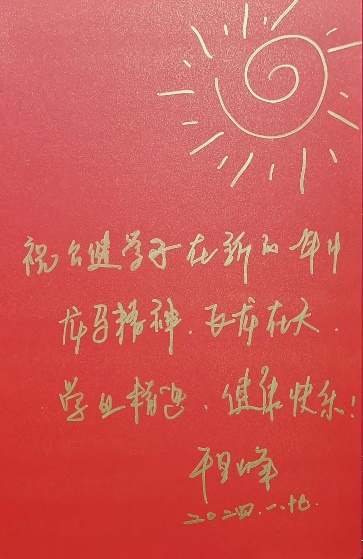 祝公健学子在新的一年里
龙马精神、飞龙在天、
学业精进、健康快乐！
2024.1.